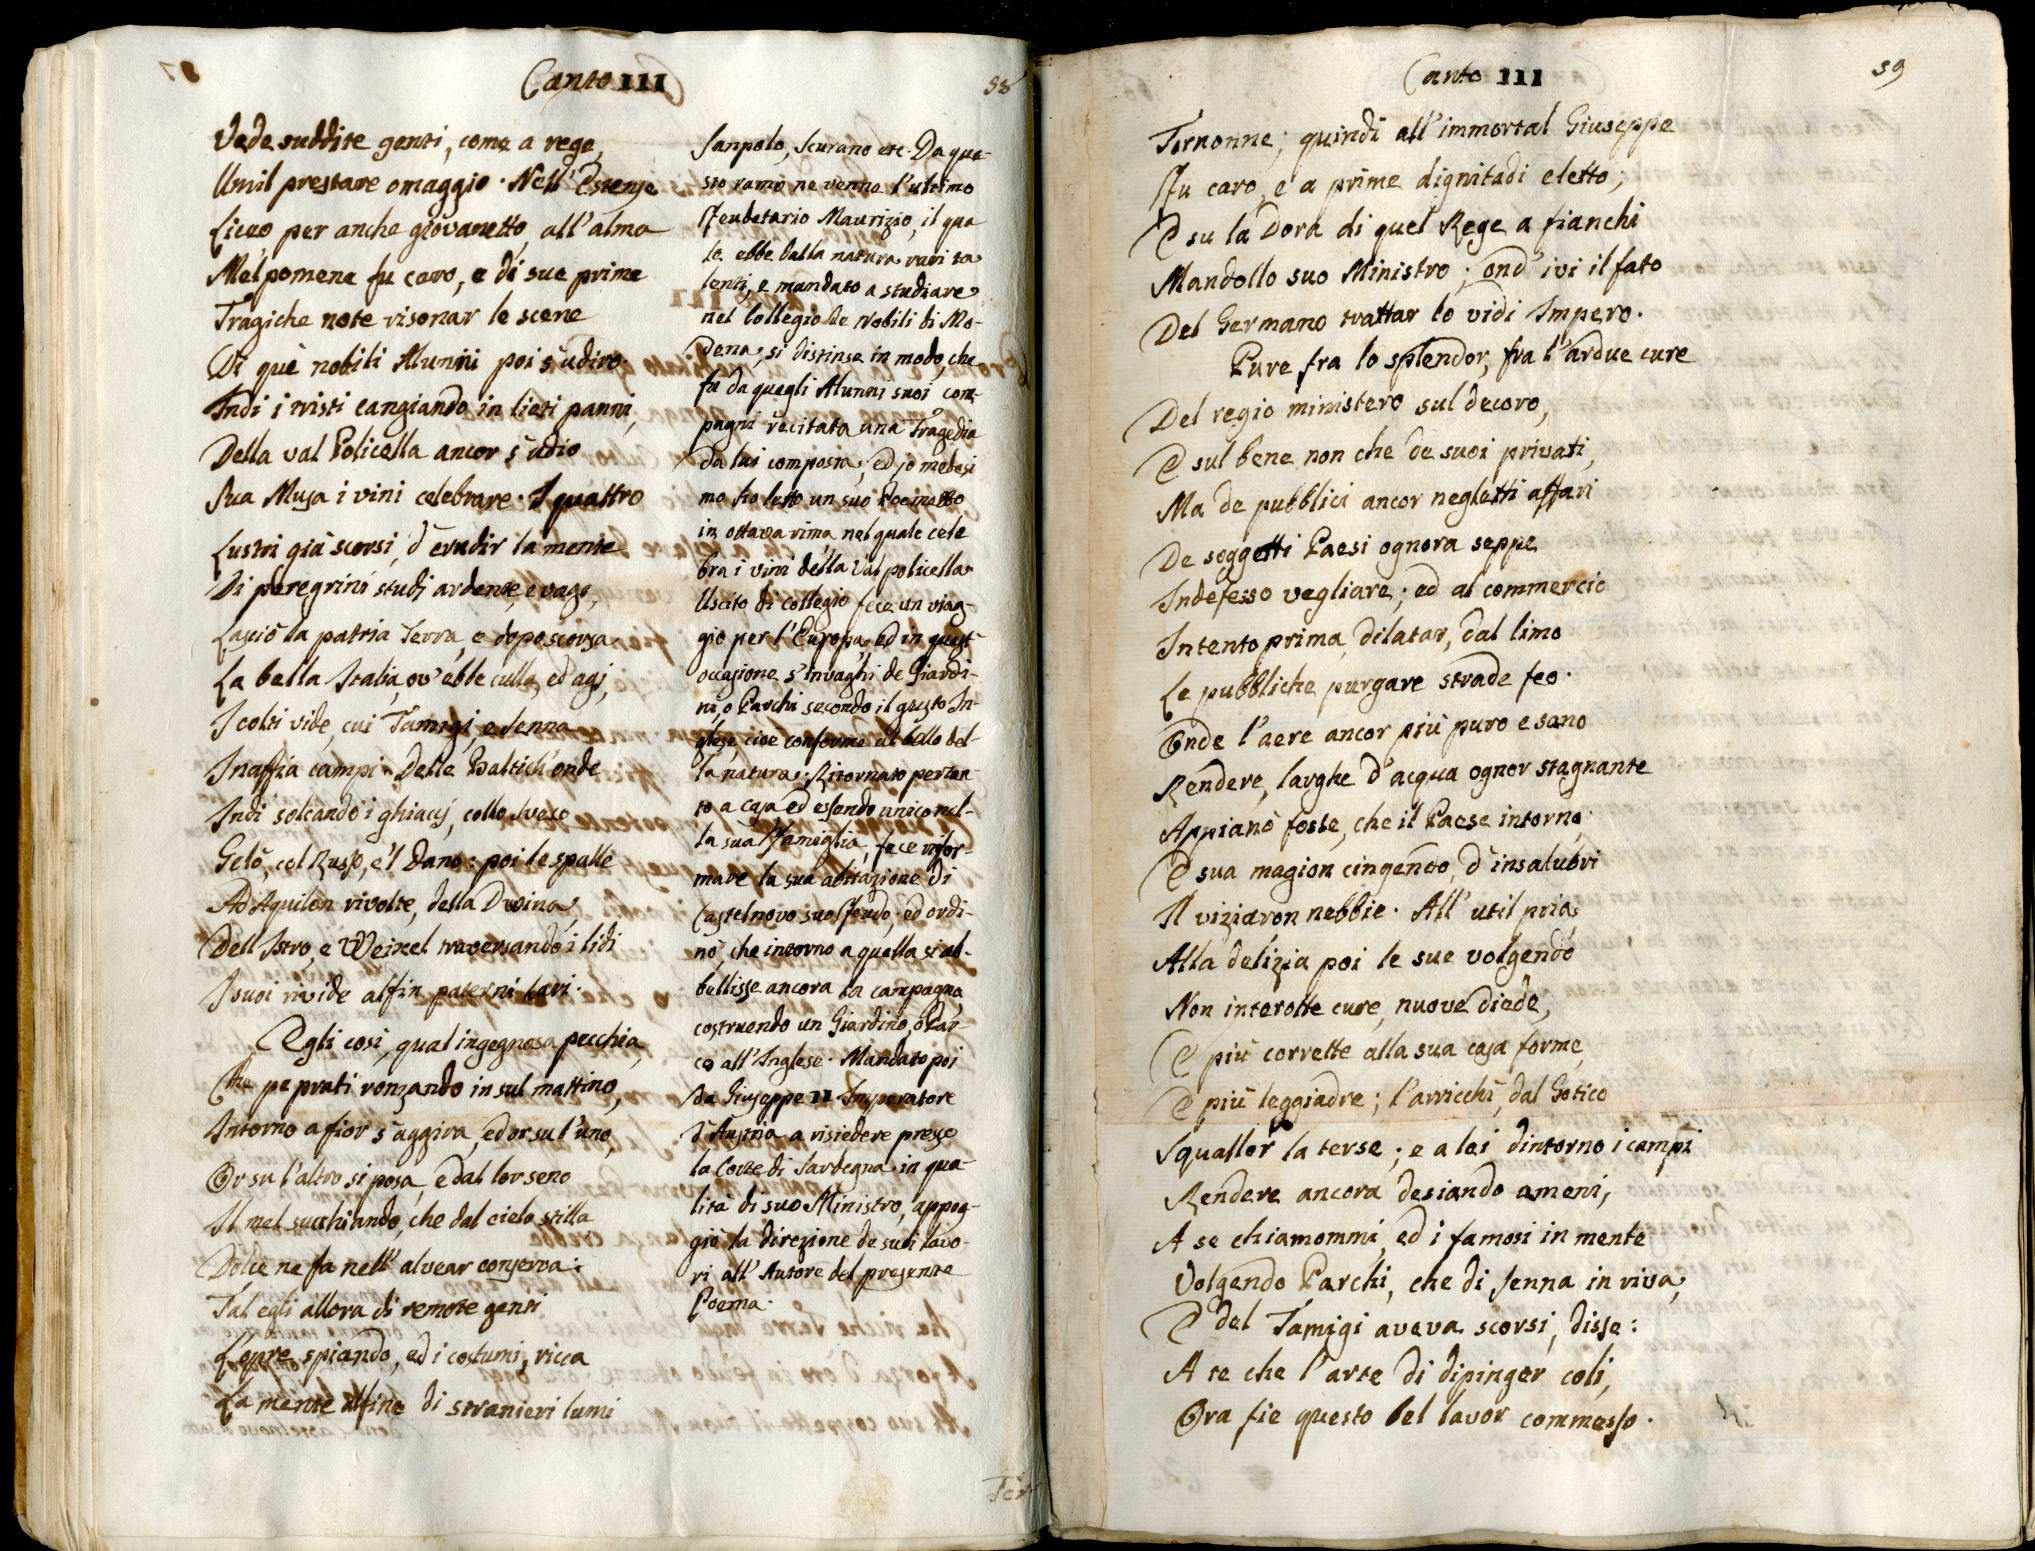 Canto III
58
Vede suddite genti, come a rege,
Umil prestare omaggio. Nell'Estense
Liceo per anche giovanetto, all'alma
Melpomene fu caro, e di sue prime
Tragiche note risonar le scene
Di què nobili Alunni poi s'udiro.
Indi i tristi cangiando in lieti panni,
Della val Policella ancor s'udio
Sua Musa i vini celebrare. I quattro
Lustri già scorsi, d'erudir la mente
Di peregrini studj ardente, e vago,
Lasciò la patria Terra, e dopo scorsa
La bella Italia, ov'ebbe culla, ed agj,
I colti vide, cui Tamigi, e Senna
Inaffia campi. Delle Baltich'onde
Indi solcando i ghiacij, collo Sveco
Gelò, col Russo, e'l Dano: poi le spalle
Ad Aquilon rivolte, della Dwina,
Dell'Istro, e Weixel traversando i lidi
I suoi rivide alfin paterni Lari.
Egli così, qual ingegnosa pecchia,
Che pe prati ronzando in sul mattino,
Intorno a fior s'aggira, ed or su l'uno,
Or su l'altro si posa, e dal lor seno
Il mel succhiando, che dal cielo stilla
Dolce ne fa nell'alvear conserva;
Tal egli allora di remote genti
L'opre spiando, ed i costumi, ricca
La mente alfine di stranieri lumi
Sanpolo, Scurano etc. Da que-
sto ramo ne venne l'ultimo
Feudetario Maurizio, il qua
le ebbe dalla natura rari ta
lenti, e mandato a studiare
nel Collegio de Nobili di Mo-
dena, si distinse in modo, che
fu da quegli Alunni suoi com-
pagni recitata una Tragedia
da lui composta; ed io medesi
mo ho letto un suo Poemetto
in ottava rima, nel quale cele
bra i vini della Val policella.
Uscito di collegio fece un viag-
gio per l'Europa, ed in quest'
occasione s'invaghì de Giardi-
ni, o Parchi secondo il gusto In-
glese, cioe conforme al bello del-
la natura. Ritornato pertan-
to a casa ed essendo unico nel-
la sua Famiglia, fece rifor-
mare la sua abitazione di
Castelnovo suo Feudo; ed ordi-
nò, che intorno a quella si ab-
bellisse ancora la campagna,
costruendo un Giardino, o Par-
co all'Inglese. Mandato poi
da Giuseppe II Imperatore
d'Austria a risiedere presso
la Corte di Sardegna in qua-
lità di suo Ministro, appog-
giò la direzione de suoi lavo-
ri all'Autore del presente
Poema.
Canto III
59
Tornonne; quindi all'immortal Giuseppe
Fu caro, e a prime dignitadi eletto;
E su la Dora di quel Rege a fianchi
Mandollo suo Ministro; ond'ivi il fato
Del Germano trattar lo vidi Impero.
Pure fra lo splendor, fra l'ardue cure
Del regio ministero sul decoro,
E sul bene non che de suoi privati,
Ma de pubblici ancor negletti affari
De soggetti Paesi ognora seppe
Indefesso vegliare; ed al commercio
Intento prima dilatar, dal limo
Le pubbliche purgare strade feo.
Onde l'aere ancor più puro e sano
Rendere, larghe d'acqua ognor stagnante
Appianò fosse, che il Paese intorno,
E sua magion cingendo, d'insalubri
Il viziaron nebbie. All'util pria,
Alla delizia poi le sue volgendo
Non interotte cure, nuove diede,
E più corrette alla sua casa forme,
E più leggiadre; l'arricchì, dal Gotico
Squallor la terse; e a lei dintorno i campi
Rendere ancora desiando ameni,
A se chiamommi, ed i famosi in mente
Volgendo Parchi, che di Senna in riva,
E del Tamigi aveva scorsi, disse:
A te che l'arte di dipinger coli,
Ora fie questo bel lavor commesso.